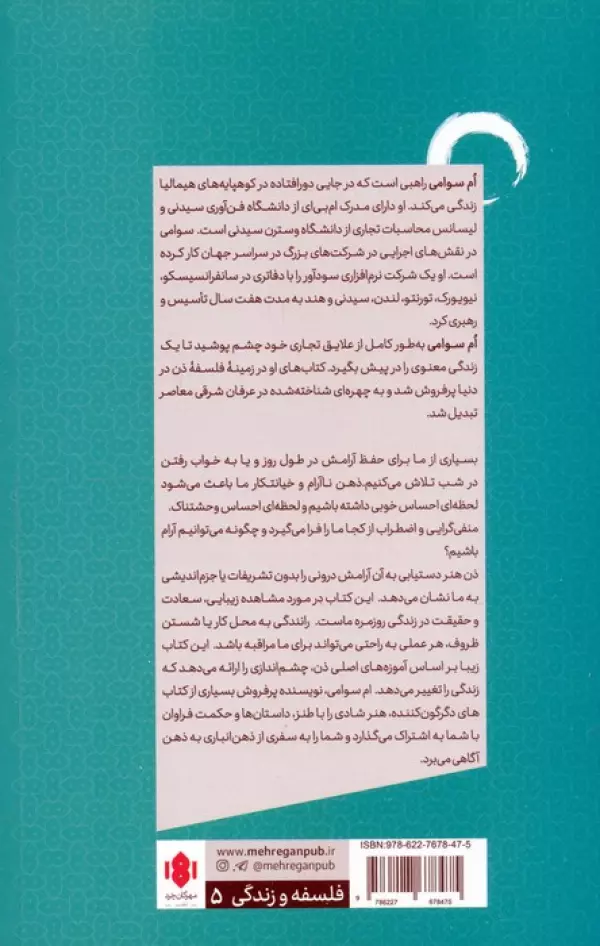 اُم سوامی راهبی است که در جایی دورافتاده در کوهپایه‌های هیمالیا
زندگی می‌کند. او دارای مدرک ام‌بی‌ای از دانشگاه فن‌آوری سیدنی و
لیسانس محاسبات تجاری از دانشگاه وسترن سیدنی است. سوامی
در نقش‌های اجرایی در شرکت‌های بزرگ در سراسر جهان کار کرده
است. او یک شرکت نرم‌افزاری سودآور را با دفاتری در سانفرانسیسکو،
نیویورک، تورنتو، لندن، سیدنی و هند به مدت هفت سال تأسیس و
رهبری کرد.
اُم سوامی به‌طور کامل از علایق تجاری خود چشم پوشید تا یک
زندگی معنوی را در پیش بگیرد. کتاب‌های او در زمینهٔ فلسفهٔ ذن در
دنیا پرفروش شد و به چهره‌ای شناخته‌شده در عرفان شرقی معاصر
تبدیل شد.
بسیاری از ما برای حفظ آرامش در طول روز و یا به خواب رفتن
در شب تلاش می‌کنیم.ذهن ناآرام و خیانتکار ما باعث می‌شود
لحظه‌ای احساس خوبی داشته باشیم و لحظه‌ای احساس وحشتناک.
منفی‌گرایی و اضطراب از کجا ما را فرا می‌گیرد و چگونه می‌توانیم آرام
باشیم؟
ذن هنر دستیابی به آن آرامش درونی را بدون تشریفات یا جزم‌اندیشی
به ما نشان می‌دهد. این کتاب در مورد مشاهده زیبایی، سعادت
و حقیقت در زندگی روزمره ماست. رانندگی به محل کار یا شستن
ظروف، هر عملی به راحتی می‌تواند برای ما مراقبه باشد. این کتاب
زیبا بر اساس آموزه‌های اصلی ذن، چشم‌اندازی را ارائه می‌دهد که
زندگی را تغییر می‌دهد. ام سوامی، نویسنده پرفروش بسیاری از کتاب
های دگرگون‌کننده، هنر شادی را با طنز، داستان‌ها و حکمت فراوان
با شما به اشتراک می‌گذارد و شما را به سفری از ذهن‌انباری به ذهن
آگاهی می‌برد.
www.mehreganpub.ir
@mehreganpub
فلسفه و زندگی ۵
ISBN:978-622-7678-47-5
9 786227 678475
مهرگان خرد